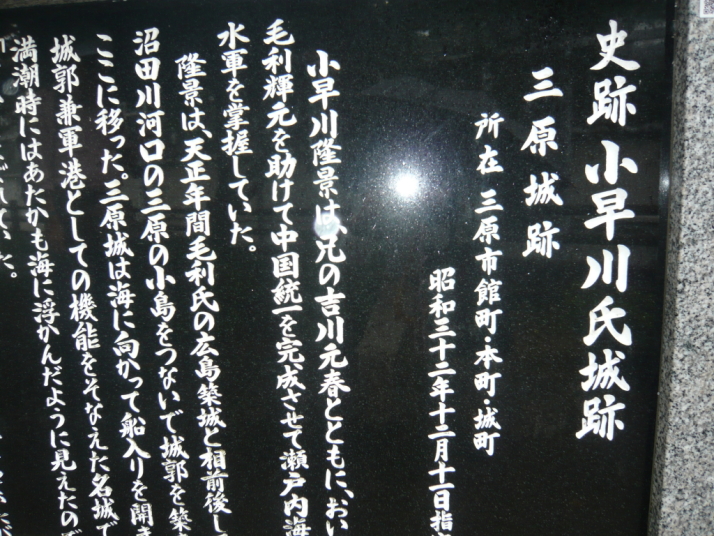 史跡 小早川氏城跡
三原城跡
所在 三原市館町・本町・城町
昭和三十二年十二月十一日指
小早川隆景は、兄の吉川元春とともに、おい
毛利輝元を助けて中国統一を完成させて瀬戸内海
水軍を掌握していた。
隆景は、天正年間毛利氏の広島築城と相前後して
沼田川河口の三原の小島をつないで城郭を築
ここに移った。三原城は海に向かって船入りを開き
城郭兼軍港としての機能をそなえた名城で
満潮時にはあたかも海に浮かんだように見えたので